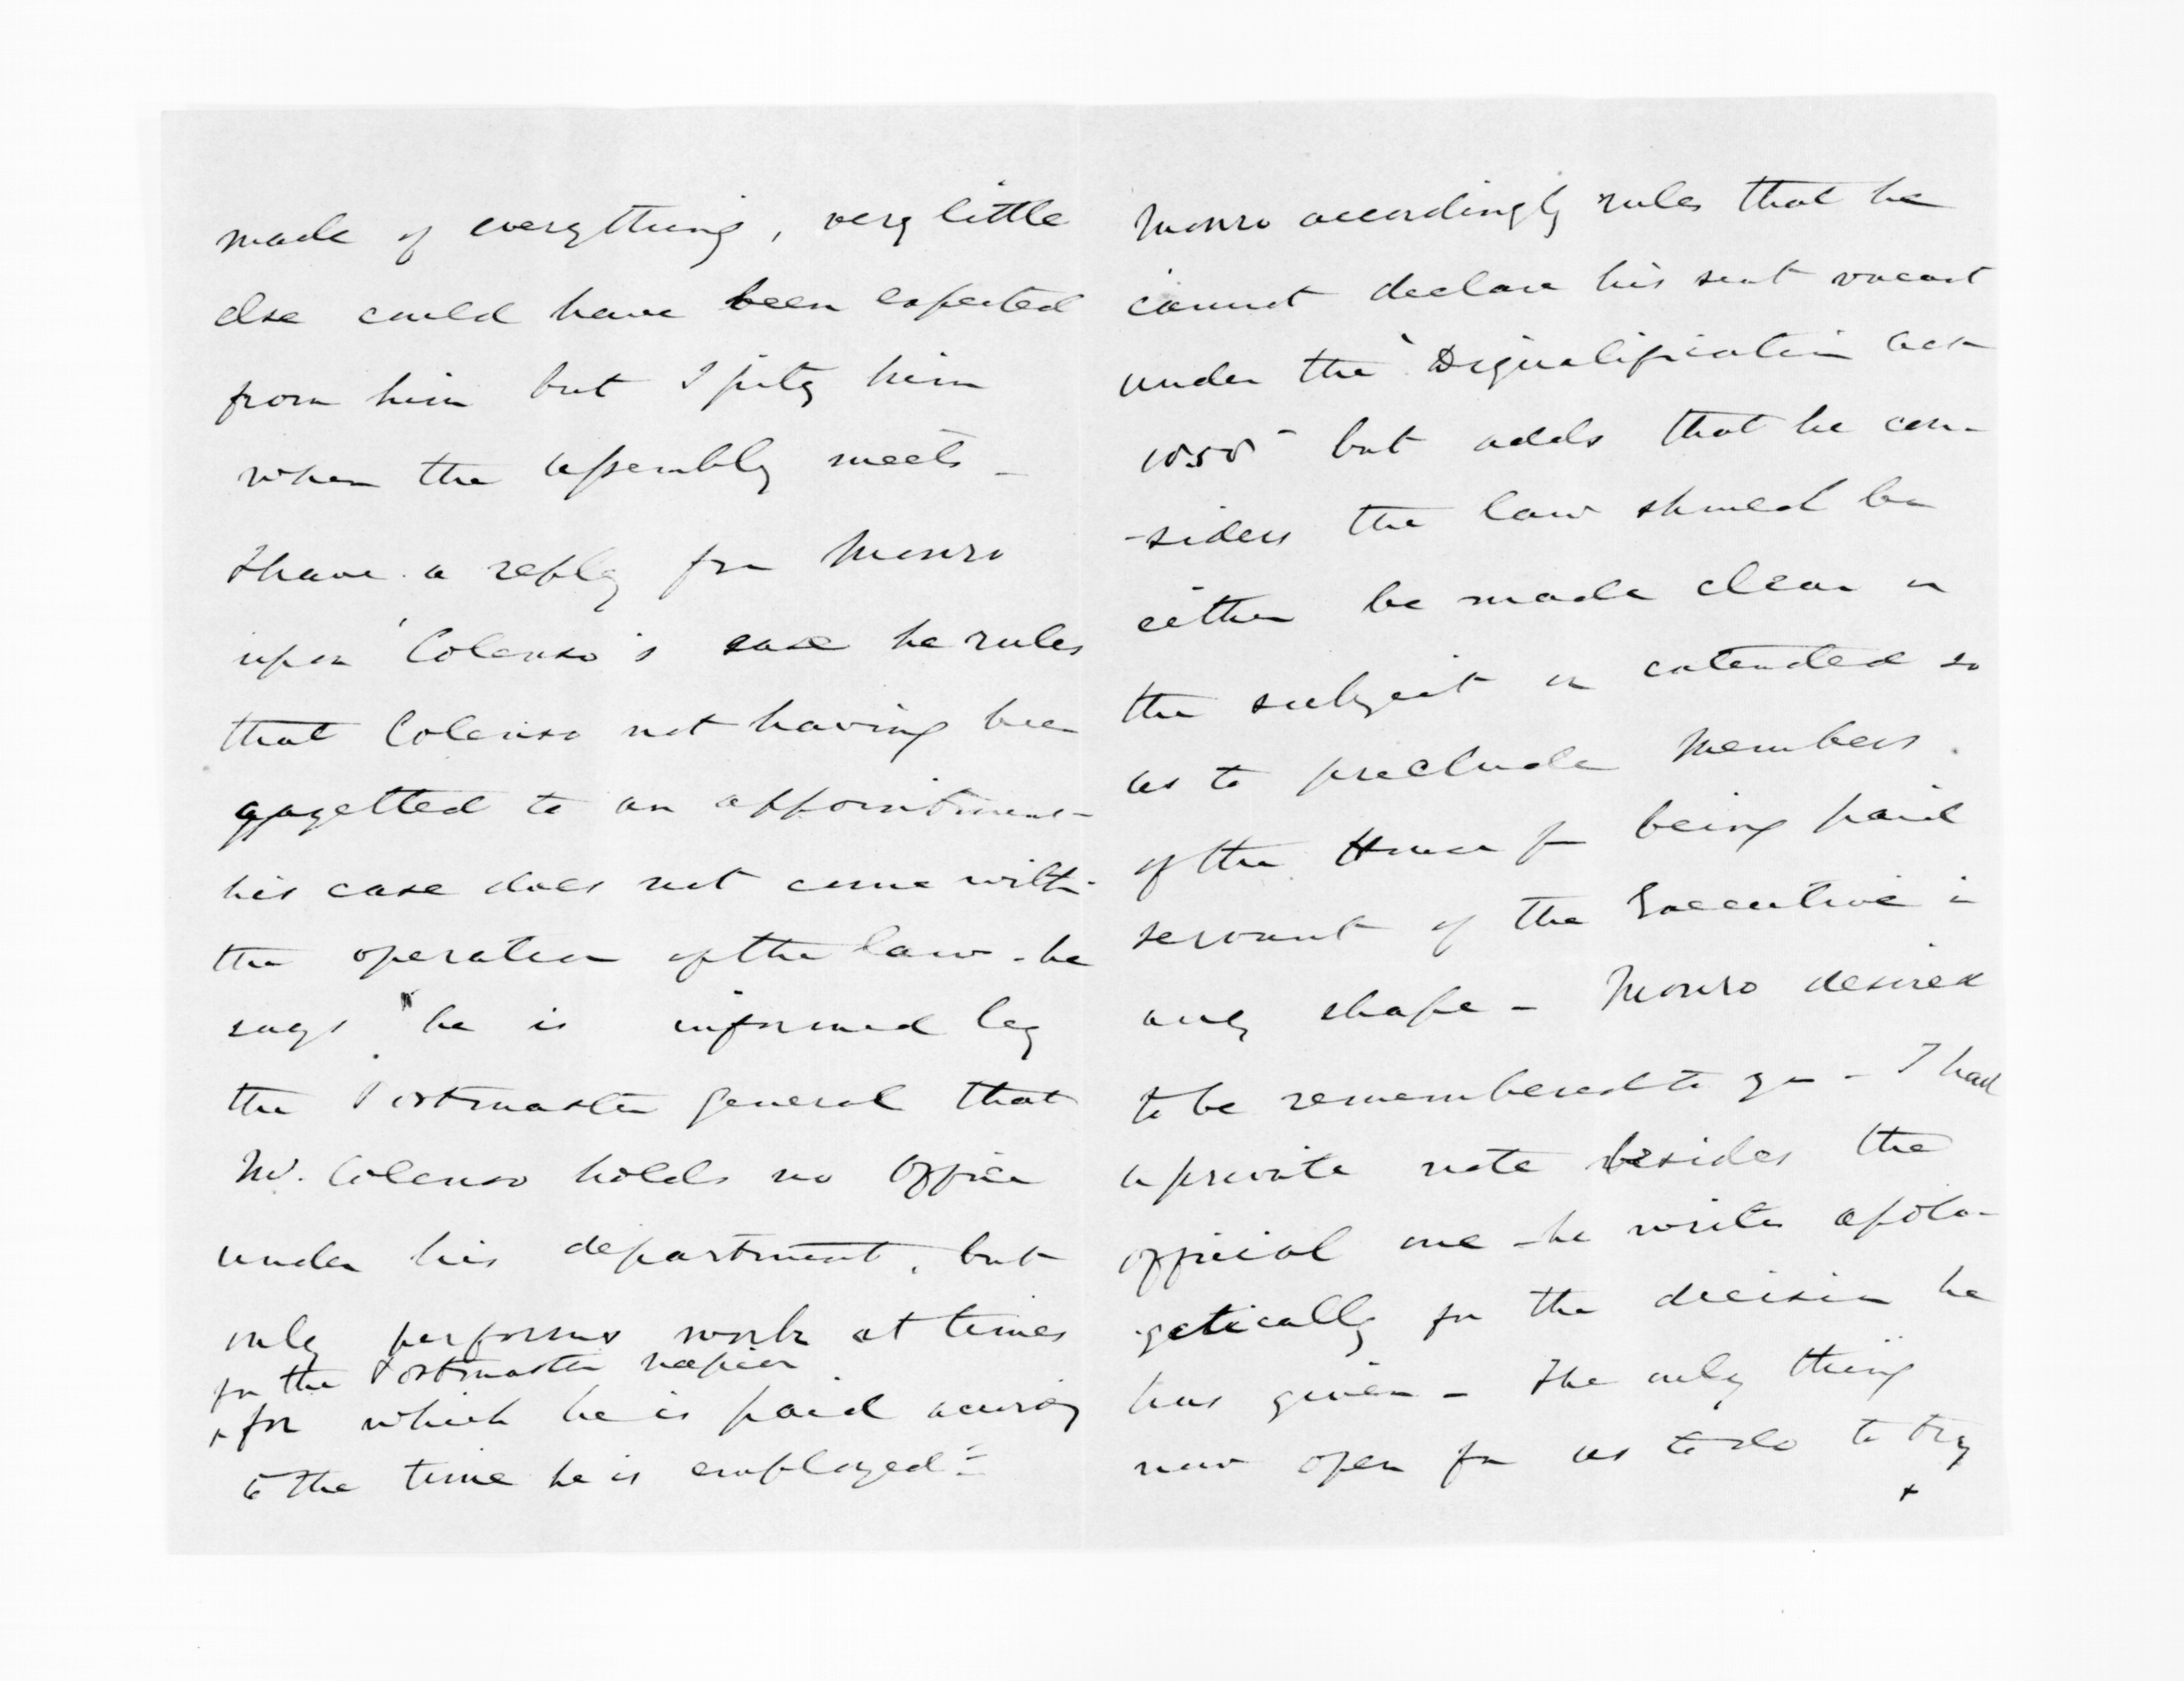 made of everything, very little
else could have been expected
from him but I pity him
when the assembly meets -
I have a reply fm Monro
upon Colenso's case he rules
that Colenso not having been
gazetted to an appointment
his case does not come within
the operation of the law - he
says "he is informed by
the Postmaster General that
Mr. Colenso holds no office
under his department, but
only performs work at times
for the Postmaster Napier
+ for which he is paid accordg
to the time he is employed"
Monro accordingly rules that he
cannot declare his seat vacant
under the "Disqualification Act
1858" but adds that he con-
-siders the law should be
either be made clear on
the subject or extended so
as to preclude Members
of the House fm being paid
servant of the Executive in
any shape - Monro desired
to be remembered to you - I had
a private note besides the
official one - he writes apolo-
-getically for the decision he
has given - The only thing
now open for us to do to try
+